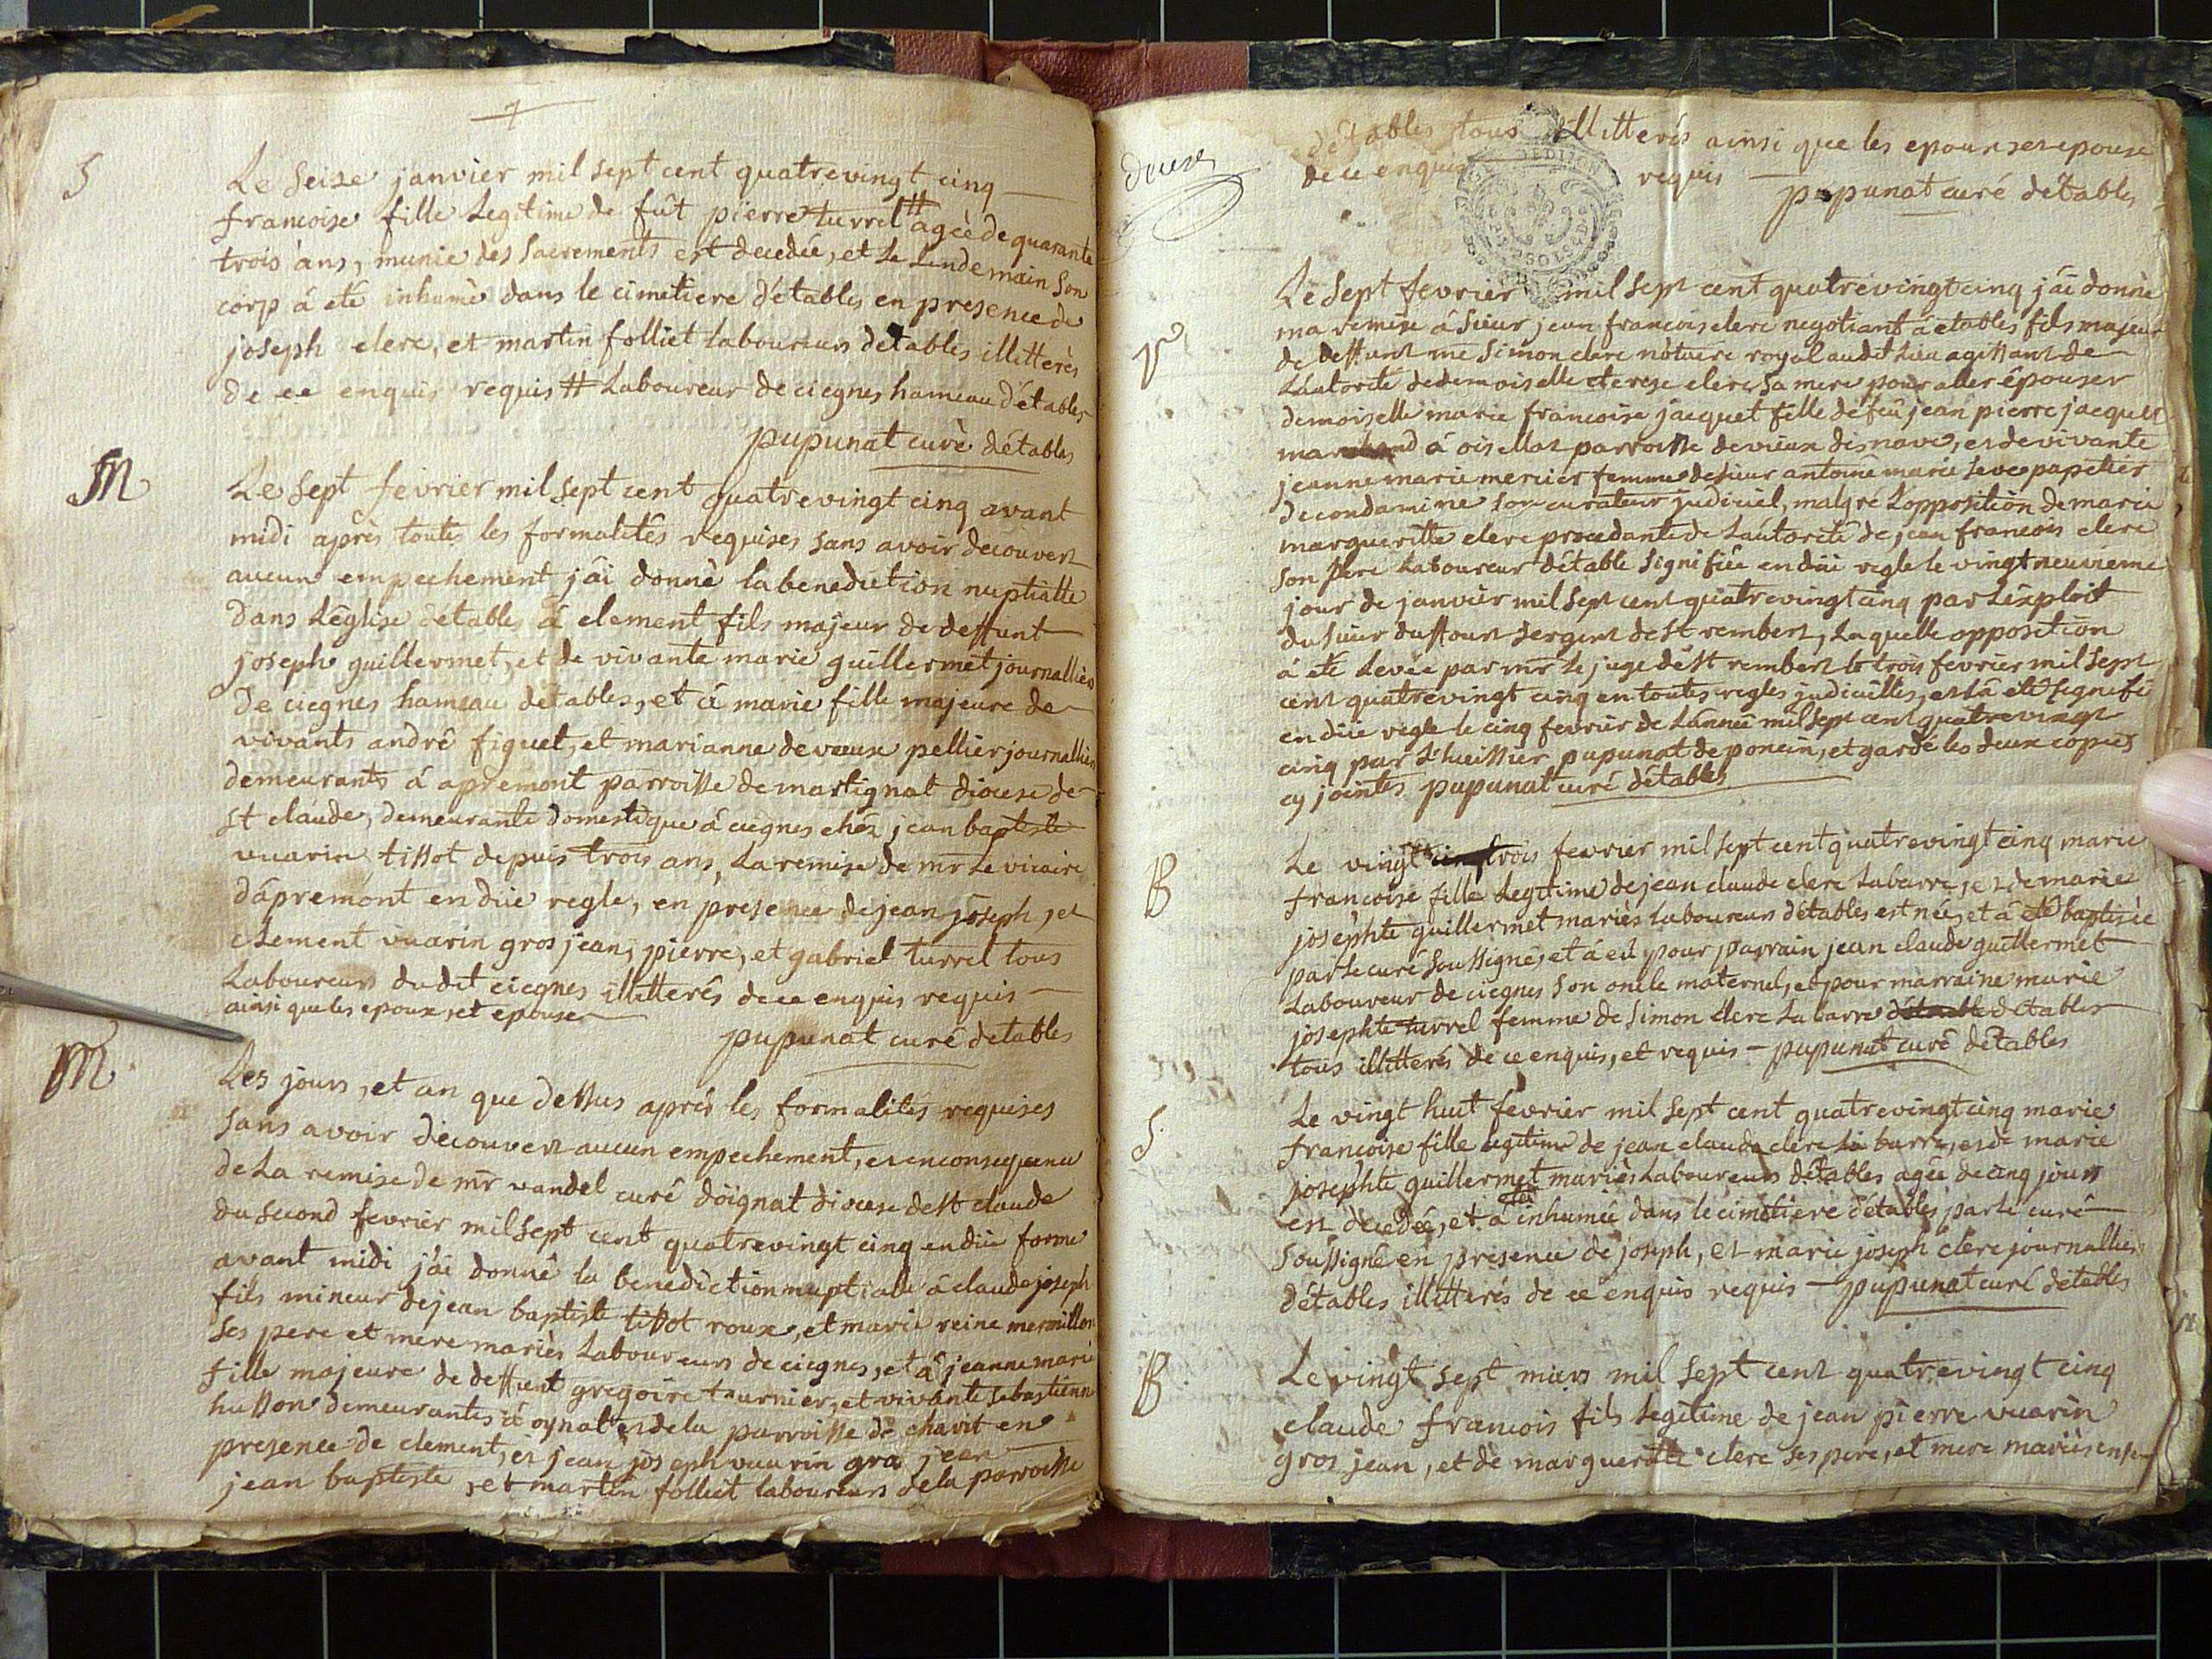 S
Le seize janvier mil sept cent quatrevingt cinq
francoise fille Legitime de fût pierre turrel # agèè de quarante
trois àns, munie des sacrements est decedée, et Le Lendemain son
corp á eté inhumè dans le cimetiere d'étables en presence de
joseph clerc, et martin folliet laboureurs détables illitterès
de ce enquis requis # Laboureur de ciegnes hameau d'étables
pupunat curè détables
M
Le sept fevrier mil sept cent quatrevingt cinq avant
midi après toutes les formalités requises sans avoir decouvert
aucun empechement j'ái donnè la benediction nuptialle
dans Léglise détables á clement fils majeur de deffunt
joseph guillermet, et de vivante marie guillermet journalliers
de ciegnes hameau détables, et á marie fille majeure de
vivants andré figuet, et marianne devaux pellier journalliers
demeurants á apremont parroisse de martignat diocese de
st claude, demeurante domestique á ciegnes chéz jean baptiste
vuarin tissot depuis trois ans, La remise de mr Le vicaire
dápremont en düe regle, en presence de jean joseph, et
clement vuarin gros jean, pierre, et gabriel turrel tous
Laboureurs dudit ciegnes illitterés de ce enquis requis
ainsi que les epoux, et epouse
pupunat curé detables
M
Les jours, et an que dessus aprés les formalités requises
sans avoir decouvert aucun empechement, et en consequence
de La remise de mr vandel curé dóignat diocese de st claude
du second fevrier mil sept cent quatrevingt cinq en düe forme
avant midi j'ái donné la benediction nuptialle á claude joseph
fils mineur de jean baptiste tissot roux, et marie reine mermillon
ses pere et mere mariès Laboureurs de ciegnes, et á jeanne marie
fille majeure de deffunt gregoire tournier, et vivante sebastienne
husson demeurantes á oynat et de la parroisse de charit en
presence de clement, et jean joseph vuarin gros jean
jean baptiste, et martin folliet laboureurs de la parroisse
douze
détables tous illitterés ainsi que les epoux, et epouse
de ce enquis requis pupunat curé détables
Le sept fevrier mil sept cent quatrevingt cinq j'ái donnè
ma remise á sieur jean francois clerc negotiant á etables fils majeur
de deffunt me simon clerc notaire royal audit lieu agissant de
Láutorité de demoiselle therese clerc sa mere pour aller épouser
demoiselle marie francoise jacquet fille de feu jean pierre jacquet
marchand á oissellaz parroisse de vieux disnave, et de vivante
jeanne marie mercier femme de sieur antoine marie seve papetier
de condamine son curateur judiciel, malgré Lopposition de marie
margueritte clerc procedante de Láutorité de jean francois clerc
son pere Laboureur détable signifiée en düe regle le vingt neuvieme
jour de janvier mil sept cent quatrevingt cinq par Léxploit
du sieur dussourt sergent de st rembert, Laquelle opposition
á eté Levée par mr le juge de st rembert le trois fevrier mil sept
cent quatrevingt cinq en toutes regles judicielles, et lá eté signifié
en düe regle le cinq fevrier de Lánnée mil sept cent quatrevingt
cinq par L'huissier pupunat de poncin, et gardé les deux copies
cy jointes pupunat curé détables
B
Le vingt trois fevrier mil sept cent quatrevingt cinq marie
francoise fille Legitime de jean claude clerc Labarre, et de marie
josephte guillermet mariès laboureurs détables est née, et á eté baptisée
par le curé soussigné, et á eû pour parrain jean claude guillermet
Laboureur de ciegnes son oncle maternel, et pour marraine marie
josephte turrel femme de simon clerc La barre detables
tous illitterés de ce enquis, et requis – pupunat curé détables
S.
Le vingt huit fevrier mil sept cent quatrevingt cinq marie
francoise fille legitime de jean claude clerc La barre, et de marie
josephte guillermet mariès Laboureurs détables agée de cinq jours
est decedée, et á été inhumée dans le cimetiere détables par le curé
soussigné en presence de joseph, et marie joseph clerc journalliers
détables illitterés de ce enquis requis – pupunat curé détables
B
Le vingt sept mars mil sept cent quatrevingt cinq
claude francois fils legitime de jean pierre vuarin
gros jean, et de margueritte clerc ses pere, et mere mariès ense-